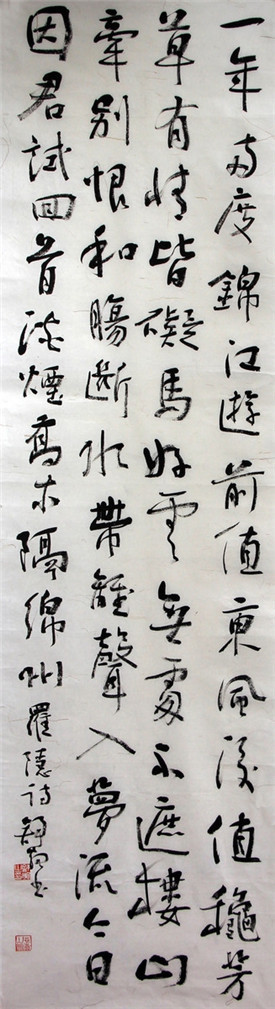 一年兩度錦江遊前值東風後值龝芳
草有情皆礙馬好雲無處不遮樓山
牽別恨和腸斷水帶離聲入夢流今日
因君試回首淡煙喬木隔綿州羅隱詩書